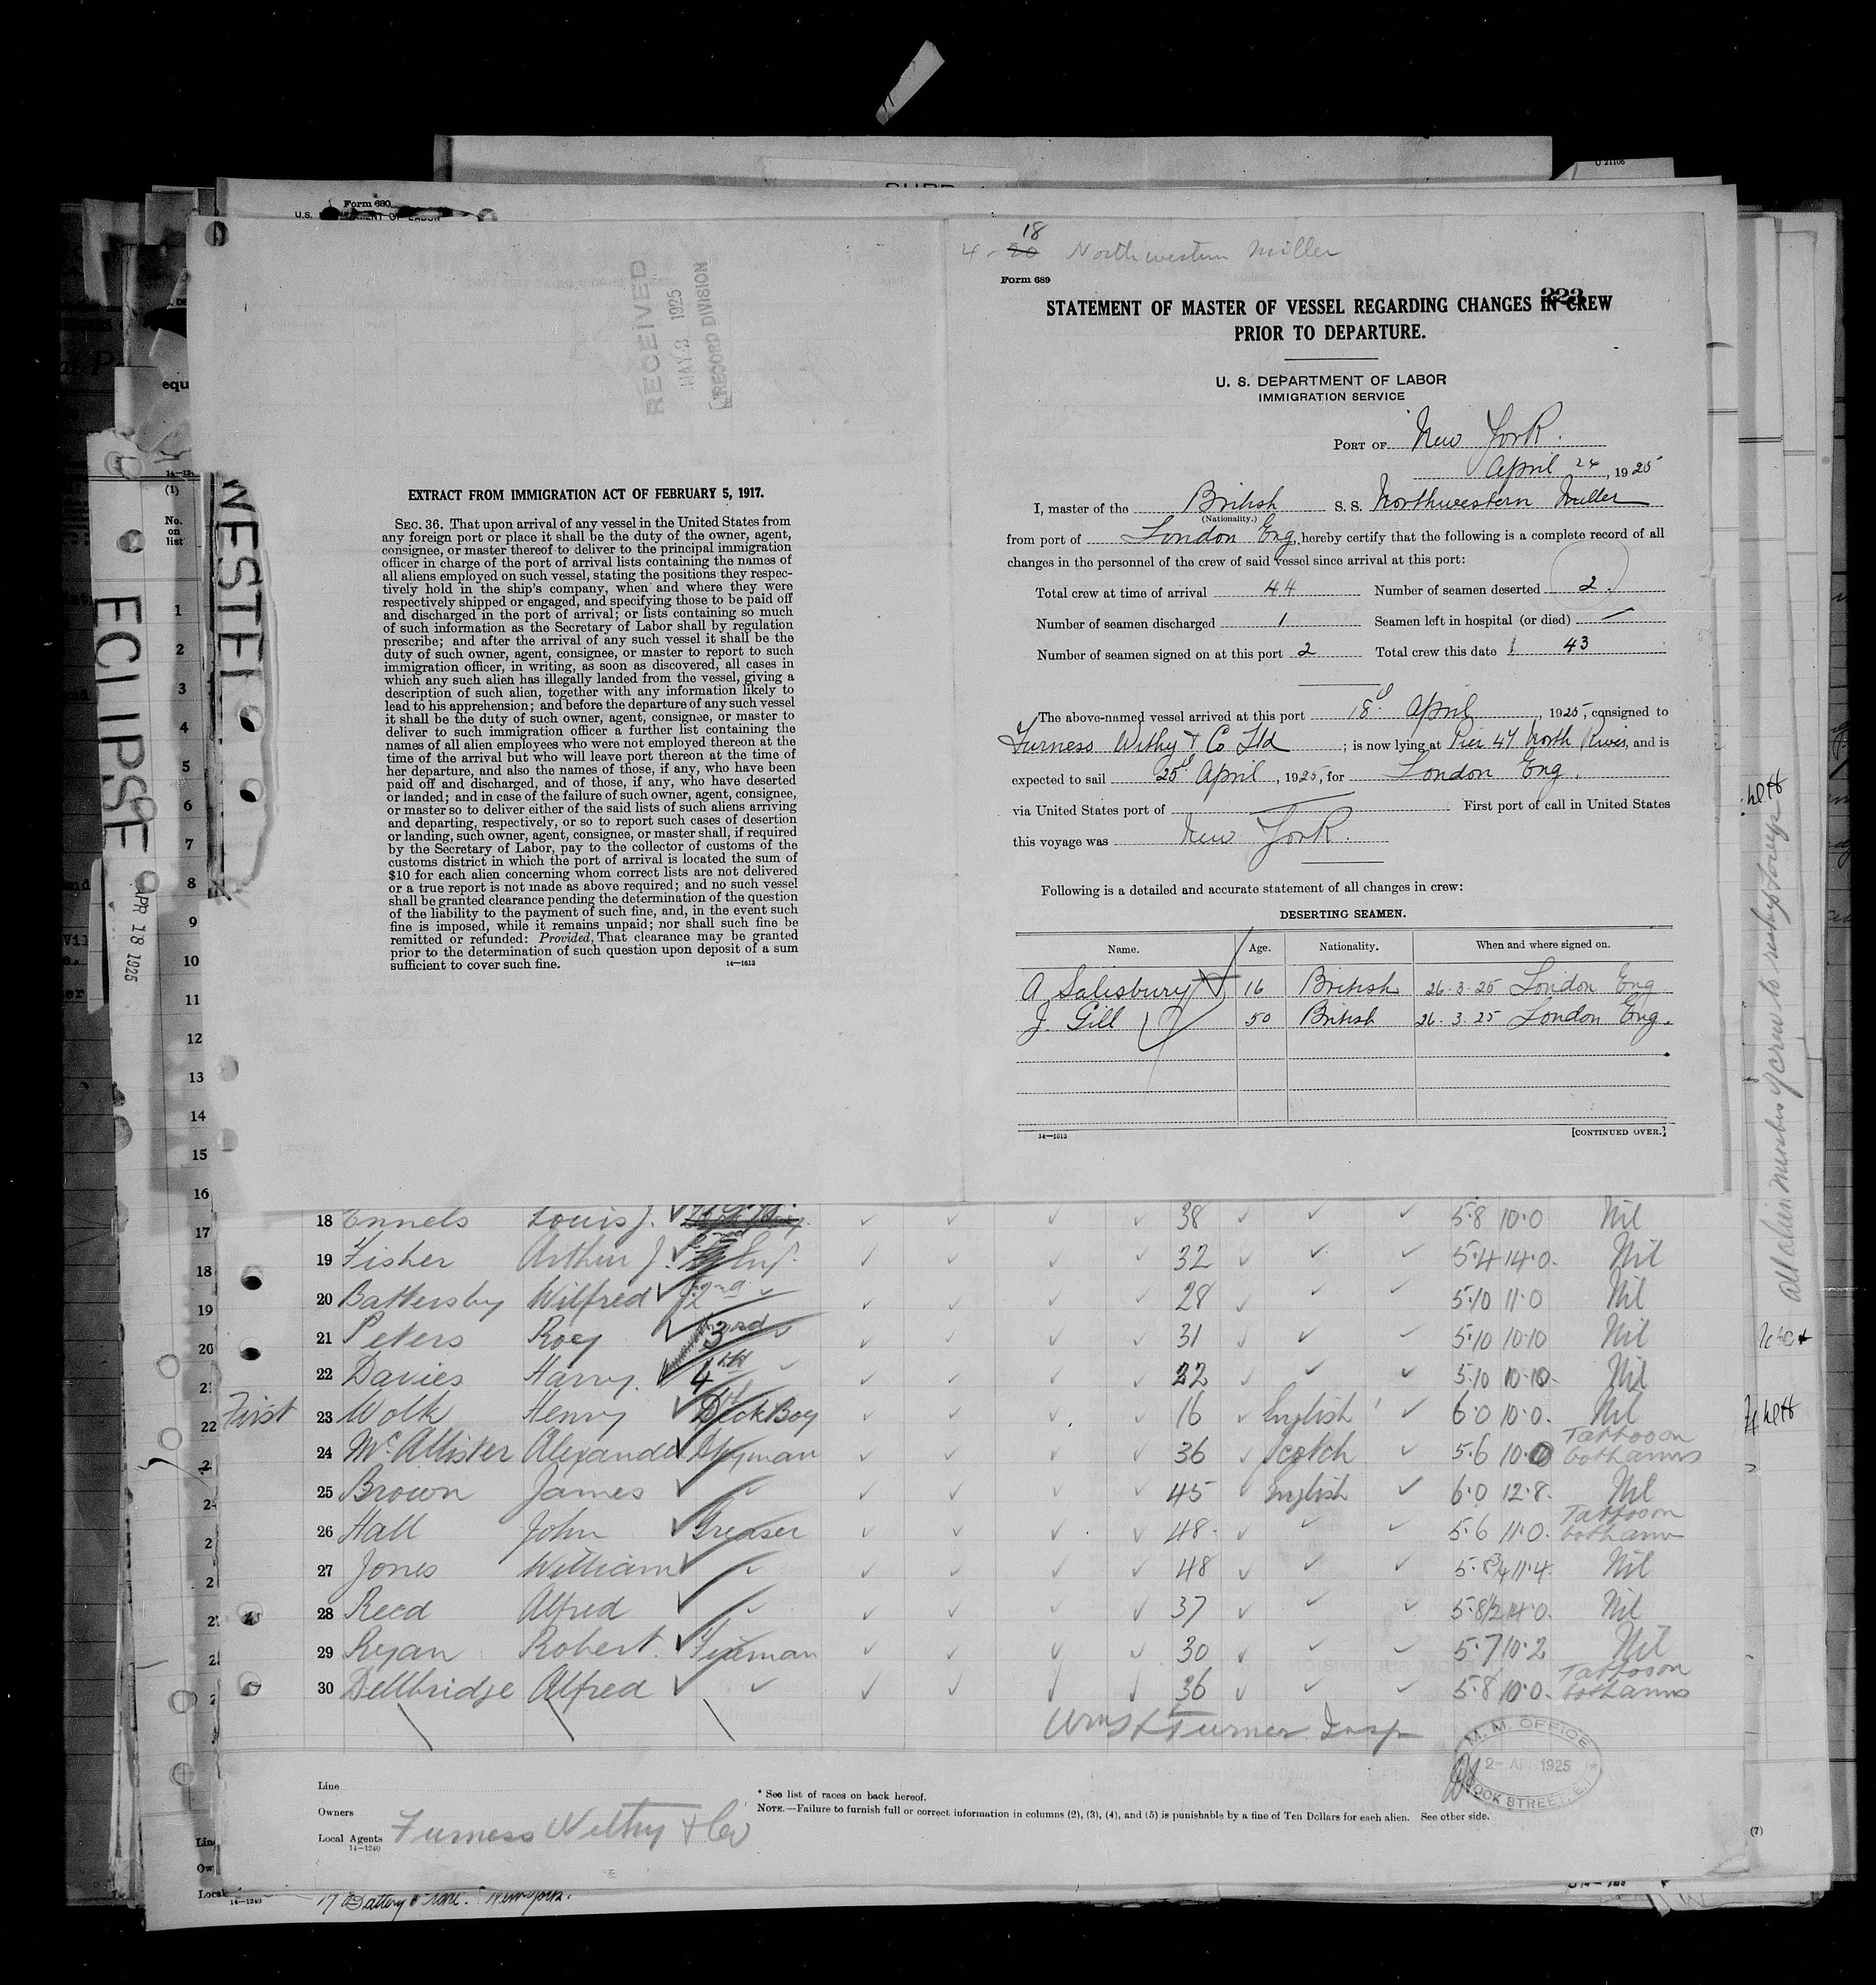 U 21106
Form 680
U.S.
RECEIVED
MAY 2 1925
RECORD DIVISION
EXTRACT FROM IMMIGRATION ACT OF FEBRUARY 5, 1917.
SEC. 36. That upon arrival of any vessel in the United States from
any foreign port or place it shall be the duty of the owner, agent,
consignee, or master thereof to deliver to the principal immigration
officer in charge of the port of arrival lists containing the names of
all aliens employed on such vessel, stating the positions they respec-
tively hold in the ship's company, when and where they were
respectively shipped or engaged, and specifying those to be paid off
and discharged in the port of arrival; or lists containing so much
of such information as the Secretary of Labor shall by regulation
prescribe; and after the arrival of any such vessel it shall be the
duty of such owner, agent, consignee, or master to report to such
immigration officer, in writing, as soon as discovered, all cases in
which any such alien has illegally landed from the vessel, giving a
description of such alien, together with any information likely to
lead to his apprehension; and before the departure of any such vessel
it shall be the duty of such owner, agent, consignee, or master to
deliver to such immigration officer a further list containing the
names of all alien employees who were not employed thereon at the
time of the arrival but who will leave port thereon at the time of
her departure, and also the names of those, if any, who have been
paid off and discharged, and of those, if any, who have deserted
or landed; and in case of the failure of such owner, agent, consignee,
or master so to deliver either of the said lists of such aliens arriving
and departing, respectively, or so to report such cases of desertion
or landing, such owner, agent, consignee, or master shall, if required
by the Secretary of Labor, pay to the collector of customs of the
customs district in which the port of arrival is located the sum of
$10 for each alien concerning whom correct lists are not delivered
or a true report is not made as above required; and no such vessel
shall be granted clearance pending the determination of the question
of the liability to the payment of such fine, and, in the event such
fine is imposed, while it remains unpaid; nor shall such fine be
remitted or refunded: Provided, That clearance may be granted
prior to the determination of such question upon deposit of a sum
sufficient to cover such fine.
14—1613
18
4 - 20 Northwestern Miller
Form 689
223
STATEMENT OF MASTER OF VESSEL REGARDING CHANGES IN CREW
PRIOR TO DEPARTURE.
U. S. DEPARTMENT OF LABOR
IMMIGRATION SERVICE
PORT OF New York.
April 24, 1925
I, master of the British S. S. Northwestern Miller
(Nationality.)
from port of London Eng, hereby certify that the following is a complete record of all
changes in the personnel of the crew of said vessel since arrival at this port:
Total crew at time of arrival 44 Number of seamen deserted 2.
Number of seamen discharged 1 Seamen left in hospital (or died) —
Number of seamen signed on at this port 2 Total crew this date 43
The above-named vessel arrived at this port 18th April, 1925, consigned to
Furness Withy & Co Ltd; is now lying at Pier 47 North River, and is
expected to sail 25th April, 1925, for London Eng.
via United States port of — First port of call in United States
this voyage was New York.
Following is a detailed and accurate statement of all changes in crew:
DESERTING SEAMEN.
Name. Age. Nationality. When and where signed on.
A Salisbury 16 British 26.3.25 London Eng
J Gill 50 British 26.3.25 London Eng.
14—1613
[CONTINUED OVER.]
equ
14—124
(1)
No.
on
list
WESTE
ECLIPSE
APR 18 1925
1
2
3
4
5
6
7
8
9
10
11
12
13
14
15
16
17
18
19
20
21
22
all alien members of crew to reship foreign
18 Ennels Louis J. 38 5.8 10.0 Nil
19 Fisher Arthur J. 32 5.4 14.0. Nil
20 Battersby Wilfred 2nd 28 5.10 11.0 Nil
21 Peters Roey 3rd 31 5.10 10.10 Nil
22 Davies Harry. 4th 22 5.10 10.10 Nil
First 23 Wolk Henry Deck Boy 16 English 6.0 10.0. Nil
24 McAllister Alexander Stoyman 36 Scotch 5.6 10.0 Tattoo on both arms
25 Brown James 45 English 6.0 12.8. Nil
26 Hall John Greaser 48 5.6 11.0. Tattoo on both arms
27 Jones William 48 5.8¾ 11.4. Nil
28 Reed Alfred 37 5.8½ 14.0. Nil
29 Ryan Robert Fireman 30 5.7 10.2 Nil
30 Dellbridge Alfred 36 5.8 10.0. Tattoo on both arms
Turner Insp
M. M. OFFICE
2- APR 1925
DOCK STREET, E.
Line
Owners
Local Agents Furness Withy & Co
14—1240
* See list of races on back hereof.
NOTE.—Failure to furnish full or correct information in columns (2), (3), (4), and (5) is punishable by a fine of Ten Dollars for each alien. See other side.
(7)
Local
14—1240
17 Battery Place. New York.